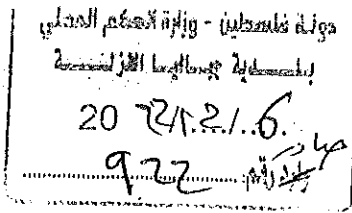 دولة فلسطين - وزارة الحكم المحلي
بلدية جباليا النزلة
20 22/12/6
صادر
رقم 922